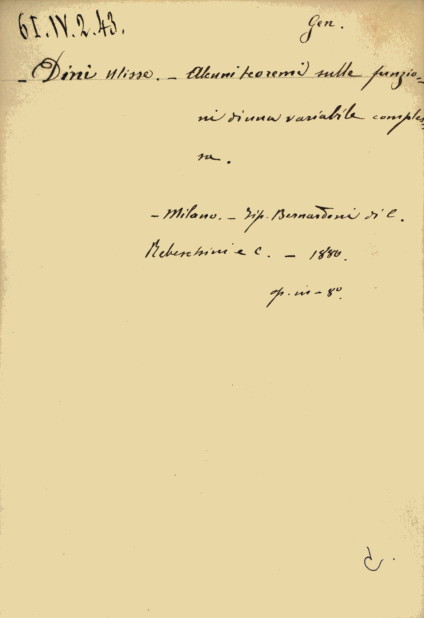 61.IV.2.43.
Gen.
- Dini Ulisse. - Alcuni teoremi sulle funzio-
ni di una variabile comples-
sa.
- Milano. - Tip. Bernardoni di C.
Rebeschini e C. - 1880.
op. in - 8°.